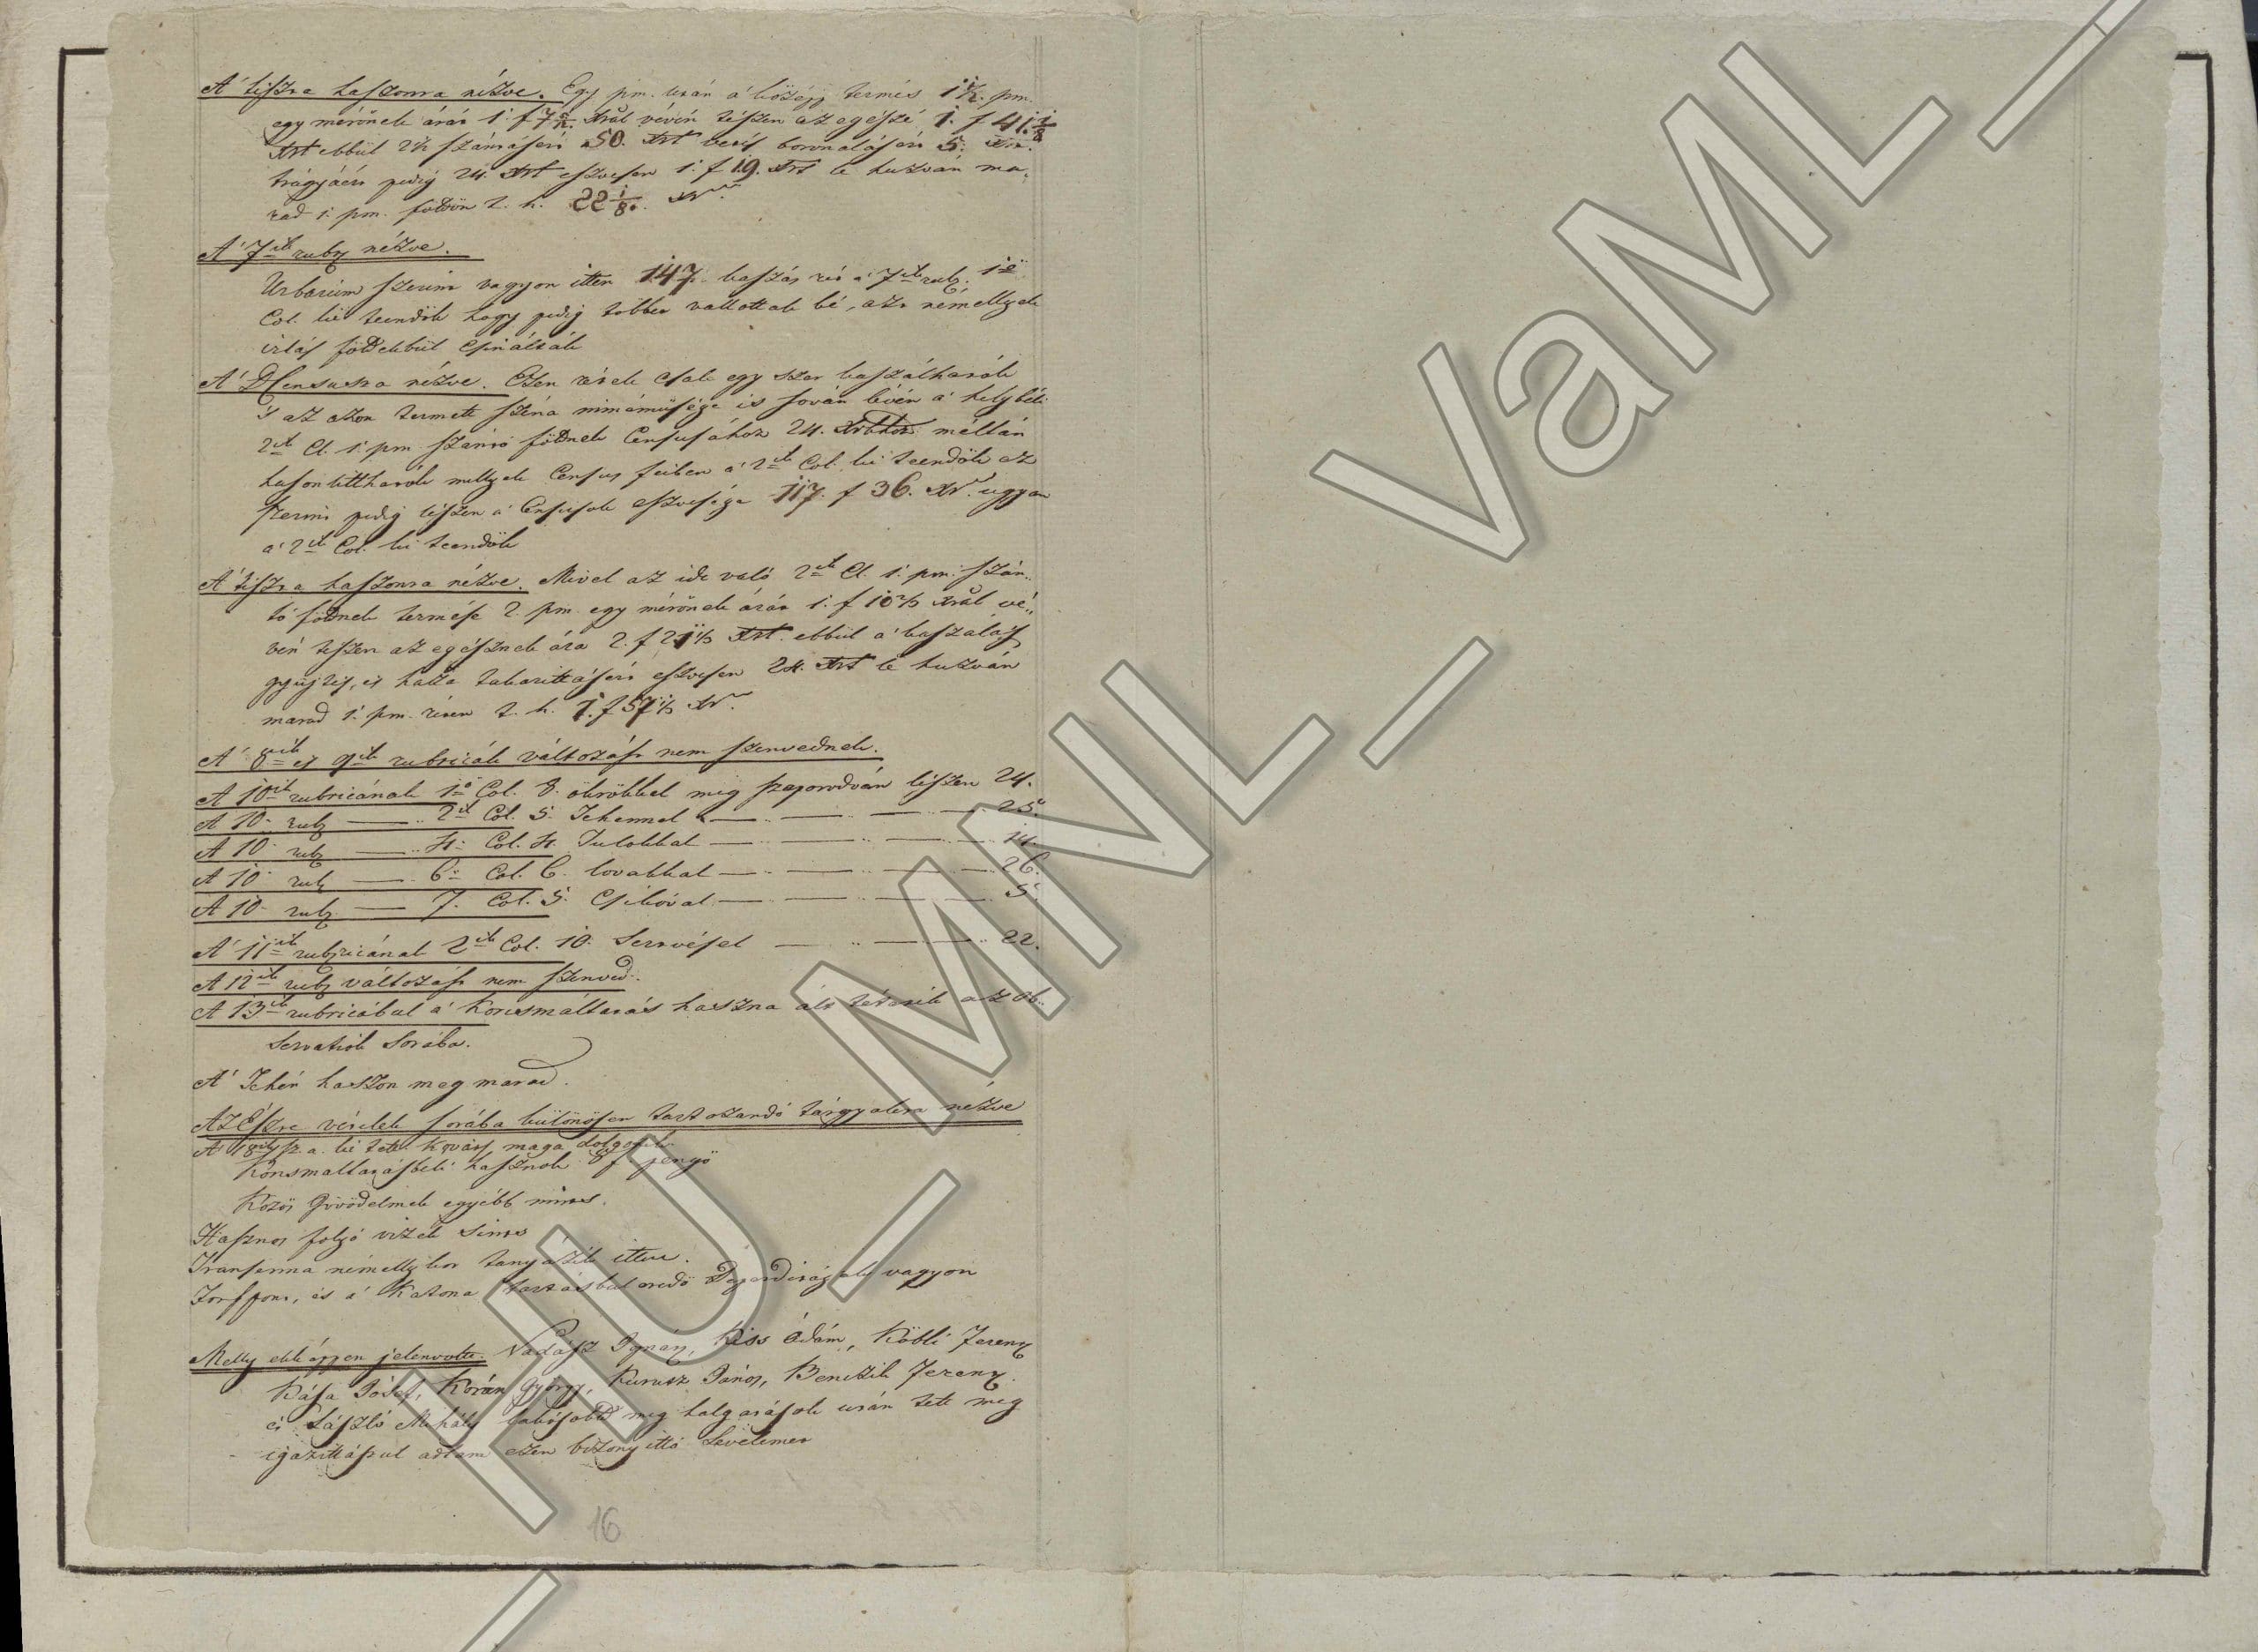 A' tiszta haszonra nézve. Egy pm. után a' közép termés 1½ pm.
egy mérőnek árát 1. f 7½ Xrál vévén tészen az egészé 1. f 41 1/8
Xrt ebbül 2k szántásért 50. Xrt vetés boronálásért 5. Xrt.
trágyáért pedig 24. Xrt eszvesen 1. f 19. Xrt le huzván ma,
rad 1. pm. földön t. h. 22 1/8. Xr
A' 7ik rubr nézve.
Urbarium szerint vagyon itten 147. kaszás rét a' 7ik rub. 1ő
Col. ki teendők hogy pedig többet vallottak bé, azt némellyek
irtás földekbül csinálták
A' Censusra nézve. Ezen rétek csak egy szer kaszálhatók
's az azon termett széna minémüsége is sován lévén a' helybéli
2ik Cl. 1. pm szántó földnek Censusához 24. Xrhoz méltán
hasonlitthatók mellyek Census feiben a' 2ik Col. ki teendők az
szerint pedig tészen a' Censusok eszvesége 117. f 36. Xr. ugyan
a' 2ik Col. ki teendők
A' tiszta haszonra nézve. Mivel az ide való 2ik Cl. 1. pm. szán,,
tó földnek termése 2. pm. egy mérőnek árát 1. f 10 2/3 Xrál vé,,
vén teszen az egésznek ára 2. f 21 1/3 Xrt. ebbül a' kaszálás
gyujtés, és haza takarittásért eszvesen 24. Xrt le huzván
marad 1. pm. réten t. h. 1. f 57 1/3 Xr.
A' 8ik és 9ik rubricák változást nem szenvednek.
A' 10ik rubricának 1ő Col. 8. ökrökkel meg szaporodván tészen 24.
A' 10. rubr — 2ik Col. 5. Tehennel — 25.
A' 10. rubr — 4. Col. 4. Tulokkal — 14.
A' 10. rubr — 6. Col. 6. lovakkal — 26.
A' 10. rubr — 7. Col. 5. Csikóval — 5.
A' 11ik rubricának 2ik Col. 10. Sertvésel — 22.
A' 12ik rubr változást nem szenved.
A' 13ik rubricábul a' Korcsmáltatás haszna ált tétetik az Ob,,
servatiok Sorába.
A' Tehén haszon meg marad.
Az Észre vételek sorába különössen tartozandó tárgyakra nézve
A' 18ik sz. a. ki tett Kovács maga dolgozik
Korcsmaltatásbéli hasznok 8 f pengő
Közös Jövödelmek egyébb nincs.
Hasznos folyó vizek sincs
Transenna némellykor tanyázik itten.
Forspont, és a' Katona tartásbul eredő vagyon
Melly ekképpen jelenvoltt. Vadász Ignátz, Kiss Ádám, Köbli Ferentz
Kása Jósef, Korán György, Kurutz János, Bentzik Ferentz.
és László Mihály lakósoktul meg halgatások után tett meg
igazittásrul adtam ezen bizonyittó Levelemet
16
HU_MNL_VaML_